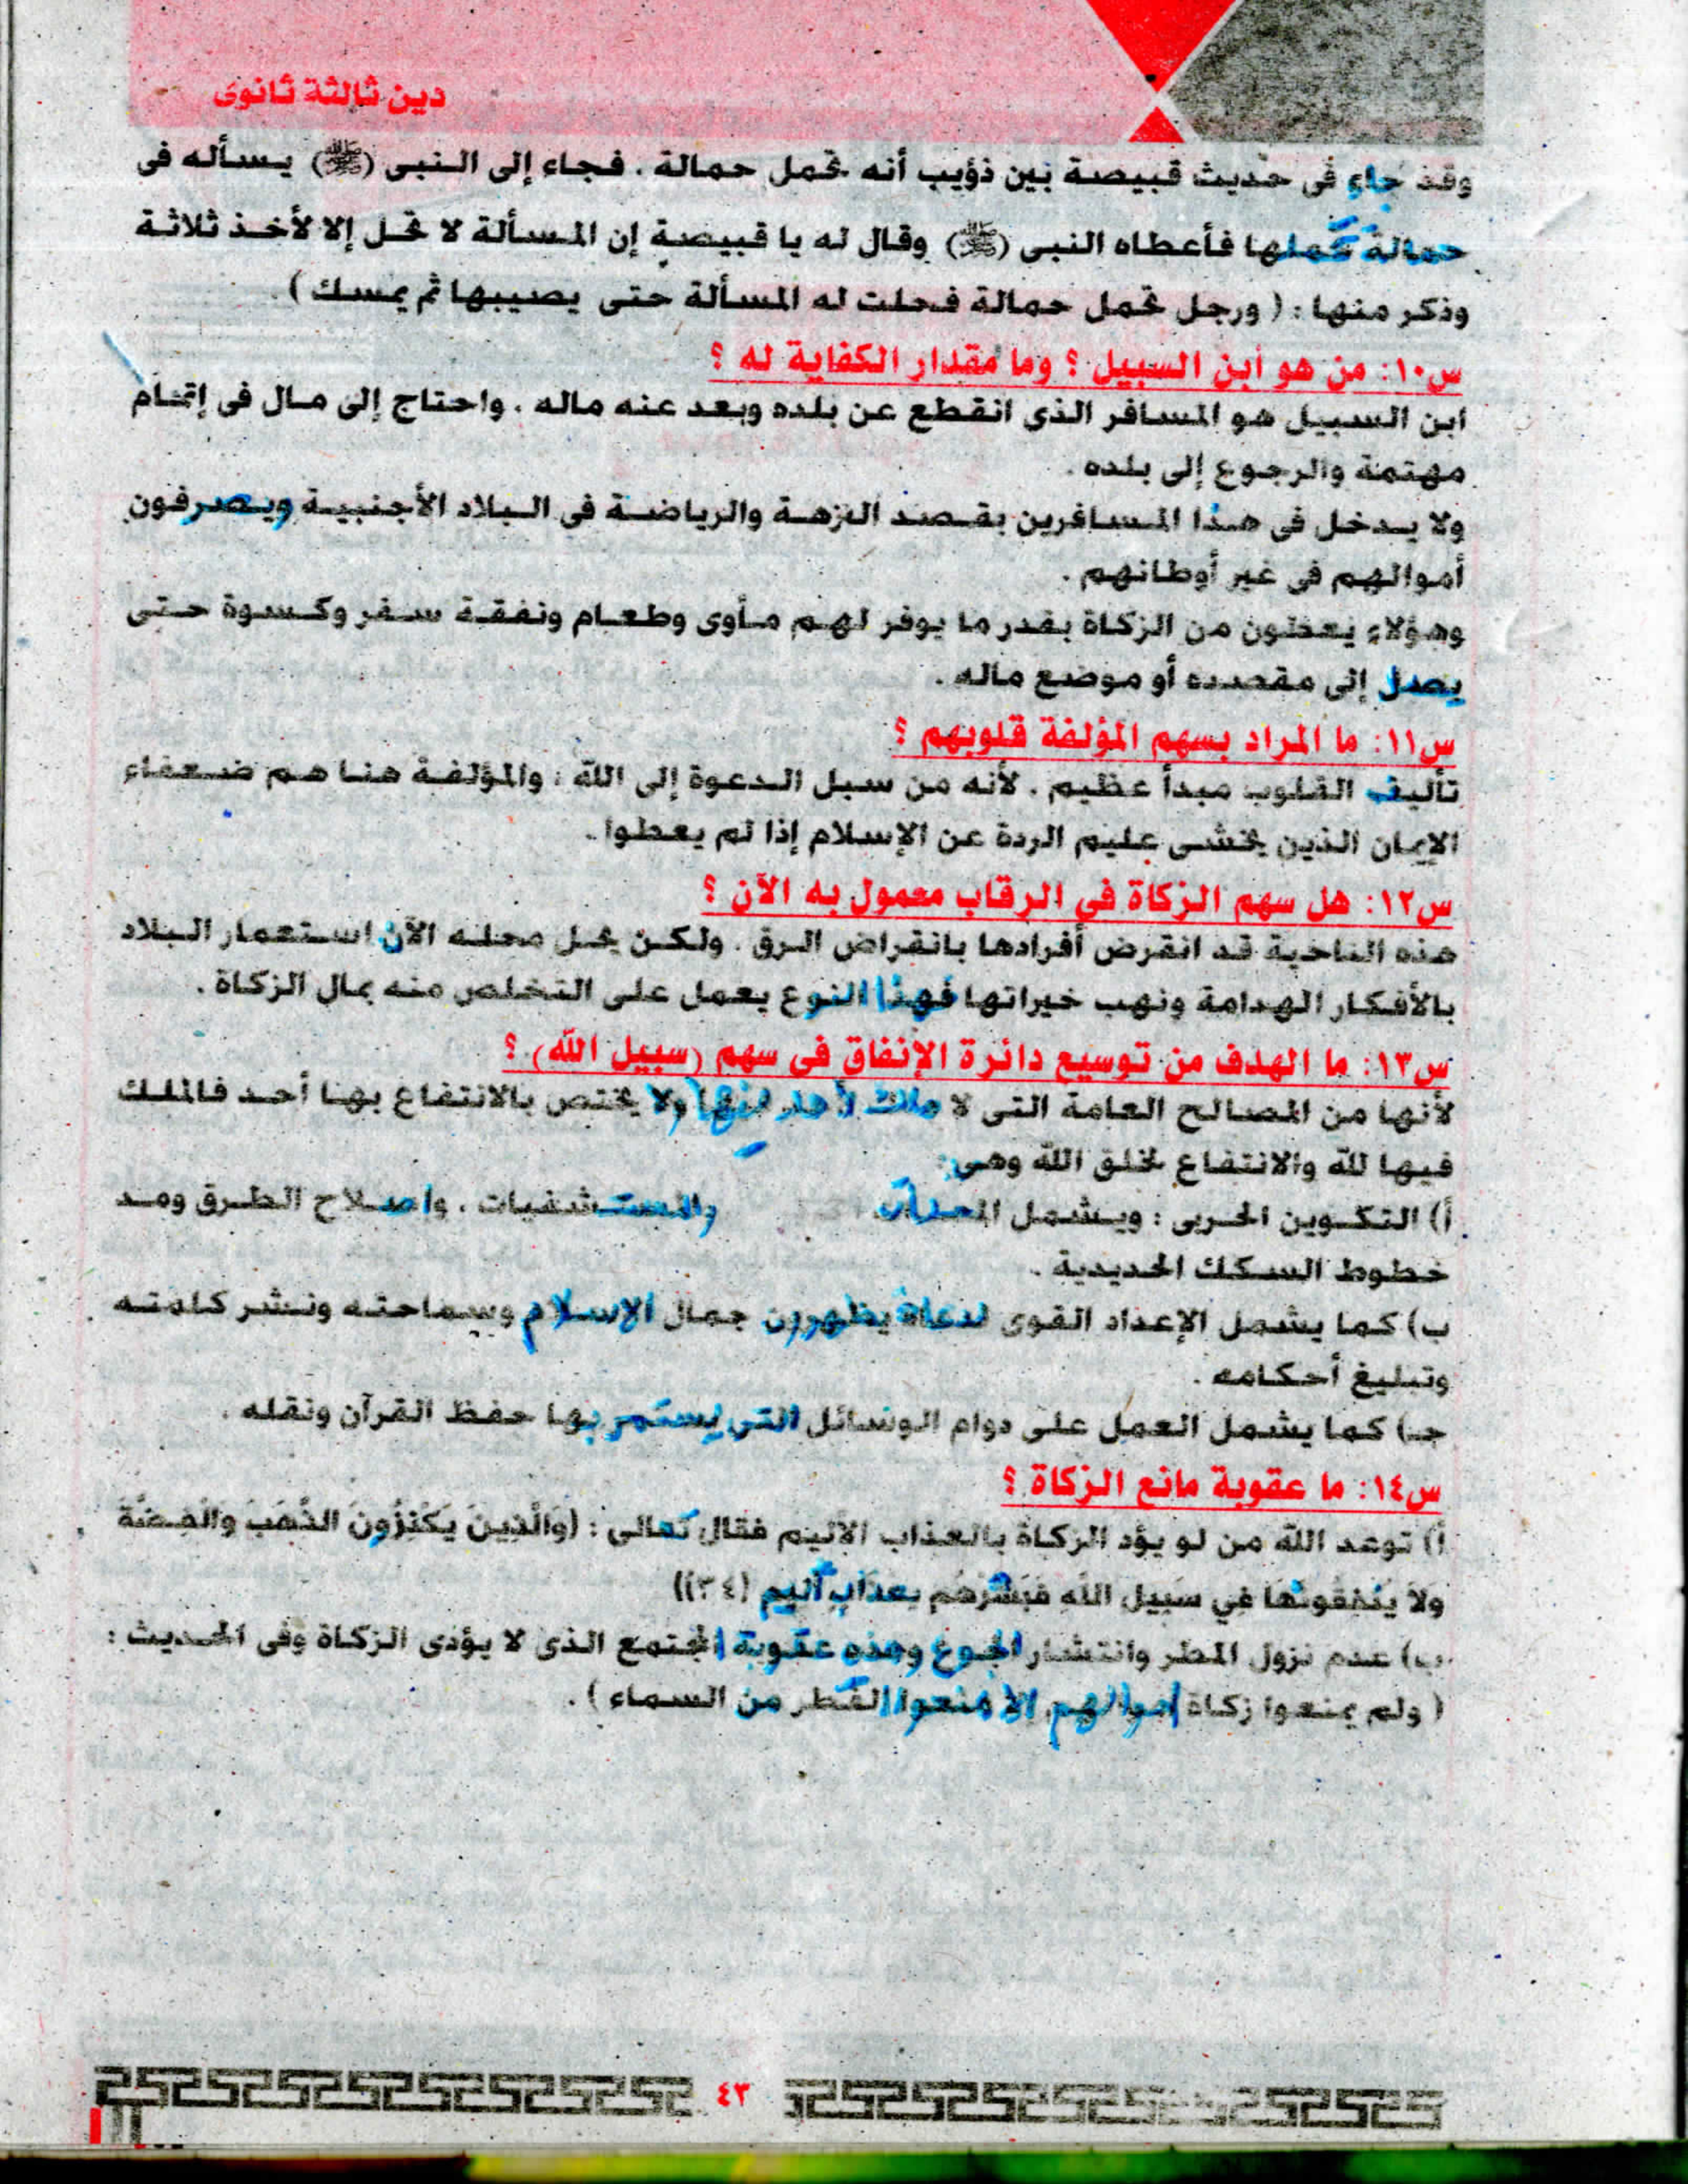 دين ثالثة ثانوى
وقد جاء فى حديث قبيصة بين ذؤيب أنه تحمل حمالة . فجاء إلى النبى (ﷺ) يسأله فى
حمالة تحملها فأعطاه النبى (ﷺ) وقال له يا قبيصة إن المسألة لا تحل إلا لأخذ ثلاثة
وذكر منها : ( ورجل تحمل حمالة فحلت له المسألة حتى يصيبها ثم يمسك ) .
س١٠: من هو ابن السبيل ؟ وما مقدار الكفاية له ؟
ابن السبيل هو المسافر الذى انقطع عن بلده وبعد عنه ماله . واحتاج إلى مال فى إتمام
مهتمة والرجوع إلى بلده .
ولا يدخل فى هذا المسافرين بقصد النزهة والرياضة فى البلاد الأجنبية ويصرفون
أموالهم فى غير أوطانهم .
وهؤلاء يعطون من الزكاة بقدر ما يوفر لهم مأوى وطعام ونفقة سفر وكسوة حتى
يصل إلى مقصده أو موضع ماله .
س١١: ما المراد بسهم المؤلفة قلوبهم ؟
تأليف القلوب مبدأ عظيم . لأنه من سبل الدعوة إلى الله ، والمؤلفة هنا هم ضعفاء
الإيمان الذين يخشى عليم الردة عن الإسلام إذا لم يعطوا .
س١٢: هل سهم الزكاة في الرقاب معمول به الآن ؟
هذه الناحية قد انقرض أفرادها بانقراض الرق . ولكن يحل محله الآن استعمار البلاد
بالأفكار الهدامة ونهب خيراتها فهذا النوع يعمل على التخلص منه بمال الزكاة .
س١٣: ما الهدف من توسيع دائرة الإنفاق فى سهم (سبيل الله) ؟
لأنها من المصالح العامة التى لا ملك لأحد فيها ولا يختص بالانتفاع بها أحد فالملك
فيها لله والانتفاع لخلق الله وهى:
أ) التكوين الحربى : ويشمل والمستشفيات ، واصلاح الطرق ومد
خطوط السكك الحديدية .
ب) كما يشمل الإعداد القوى لدعاة يظهرون جمال الإسلام وسماحته ونشر كلمته
وتبليغ أحكامه .
جـ) كما يشمل العمل على دوام الوسائل التى يستمر بها حفظ القرآن ونقله .
س١٤: ما عقوبة مانع الزكاة ؟
أ) توعد الله من لو يؤد الزكاة بالعذاب الأليم فقال تعالى : (وَالَّذِينَ يَكْنِزُونَ الذَّهَبَ وَالْفِضَّةَ
وَلاَ يُنْفِقُونَهَا فِي سَبِيلِ اللهِ فَبَشِّرْهُم بِعَذَابٍ أَلِيمٍ (٣٤))
ب) عدم نزول المطر وانتشار الجوع وهذه عقوبة المجتمع الذى لا يؤدى الزكاة وفى الحديث :
( ولم يمنعوا زكاة أموالهم إلا منعوا القطر من السماء ) .
٤٣